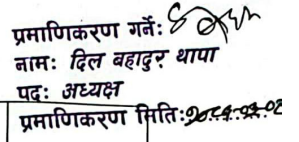 प्रमाणिकरण गर्ने:
नामः दिल बहादुर थापा
पदः अध्यक्ष
प्रमाणिकरण मिति: